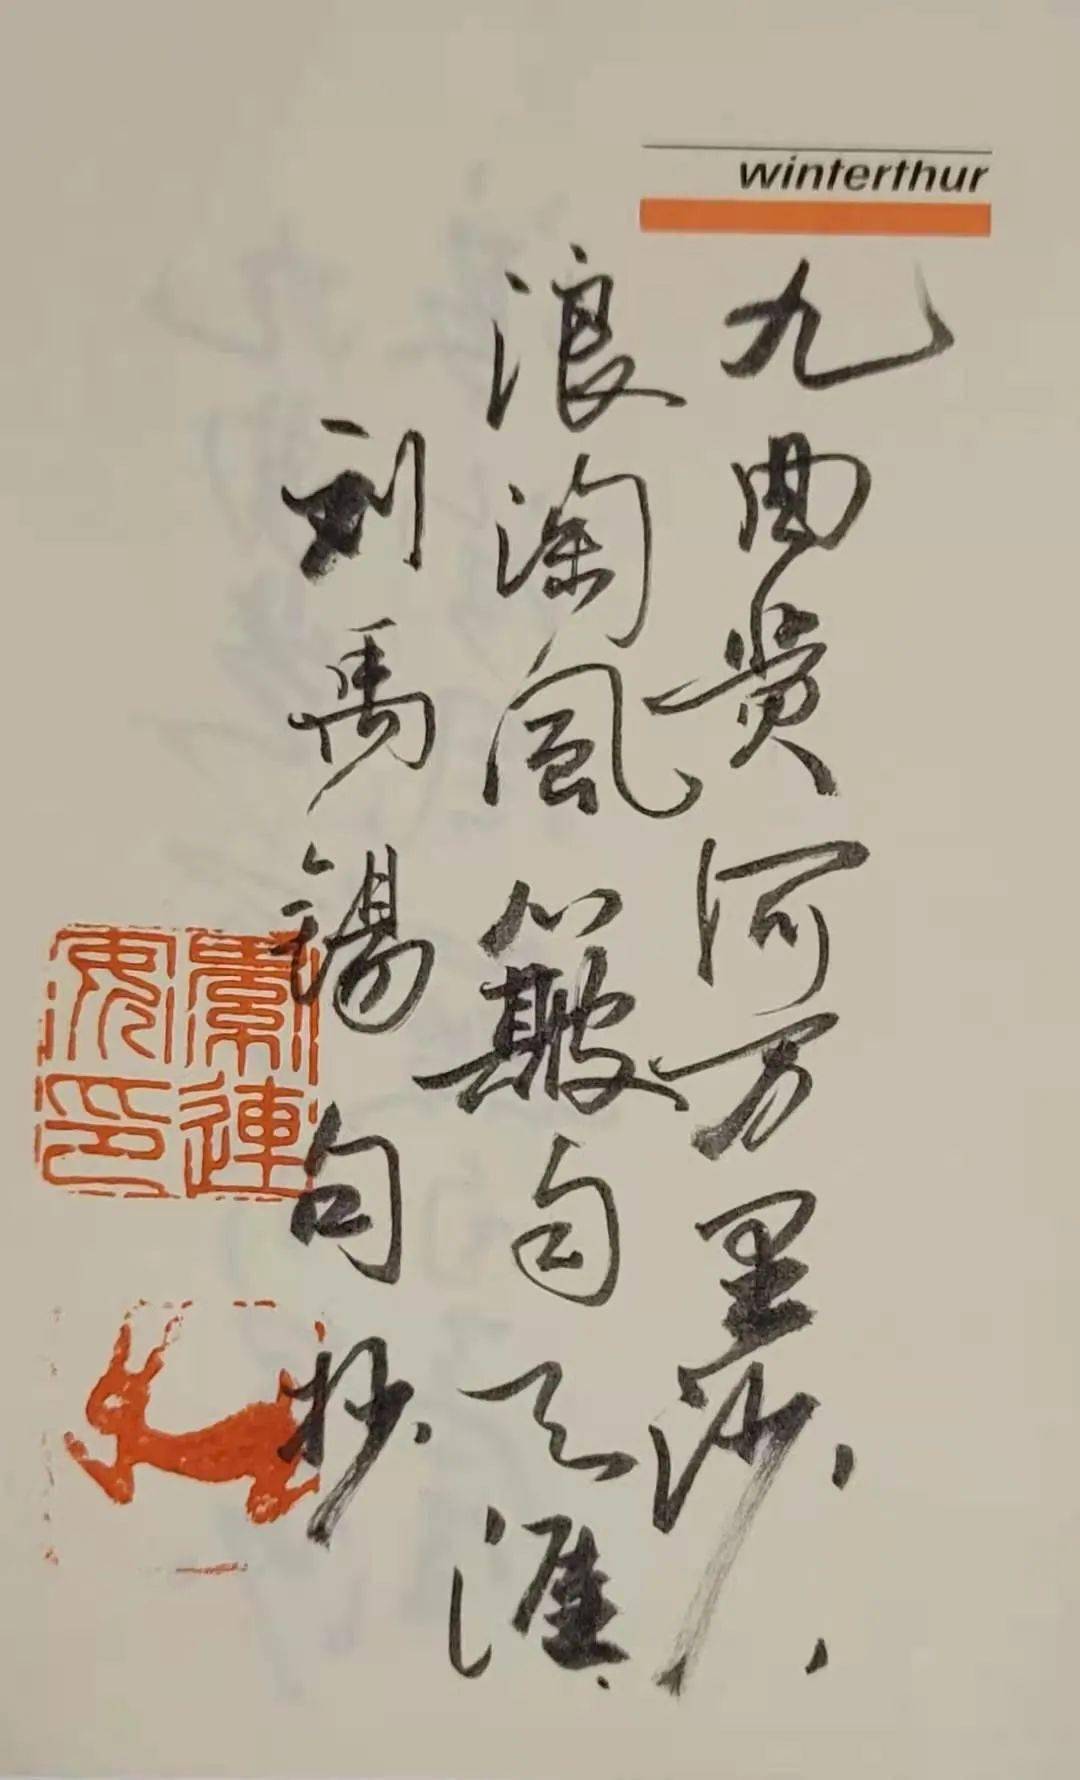 winterthur
九曲黄河万里沙，
浪淘风簸自天涯。
刘禹锡句抄